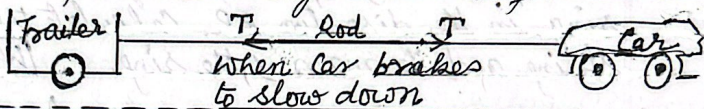 Trailer T, Rod T Car
When Car brakes
to slow down